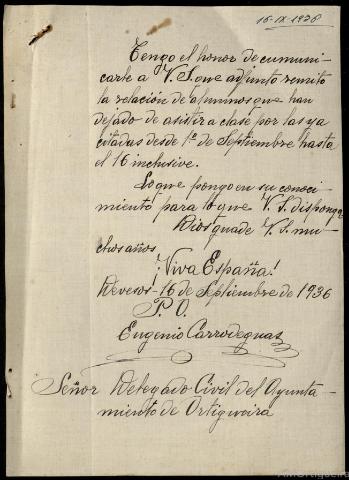 16-IX-1936
Tengo el honor de cumuni-
carle a V. S. que adjunto remito
la relación de alumnos que han
dejado de asistir a clase por las ya
citadas desde 1º de Septiembre hasta
el 16 inclusive.
Lo que pongo en su conoci-
miento para lo que V. S. disponga
Dios guade V. S. mu-
chos años
¡Viva España!
Devesos-16 de Septiembre de 1936
P. O.
Eugenio Carrodeguas
Señor Delegado Civil del Ayunta-
miento de Ortigueira